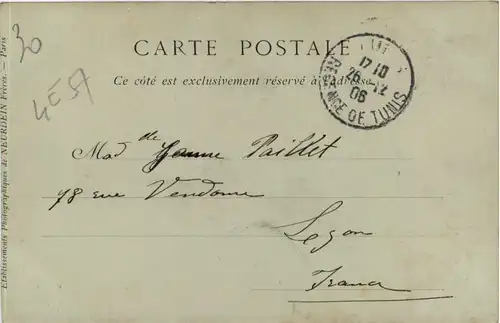 30
CARTE POSTALE
Ce côté est exclusivement réservé à l'adresse
17 10
26 -12
06
REGENCE DE TUNIS
Mad de Jeanne Paillet
78 rue Vendome
Lyon
France
Etablissements Photographiques de NEURDEIN Frères. — Paris